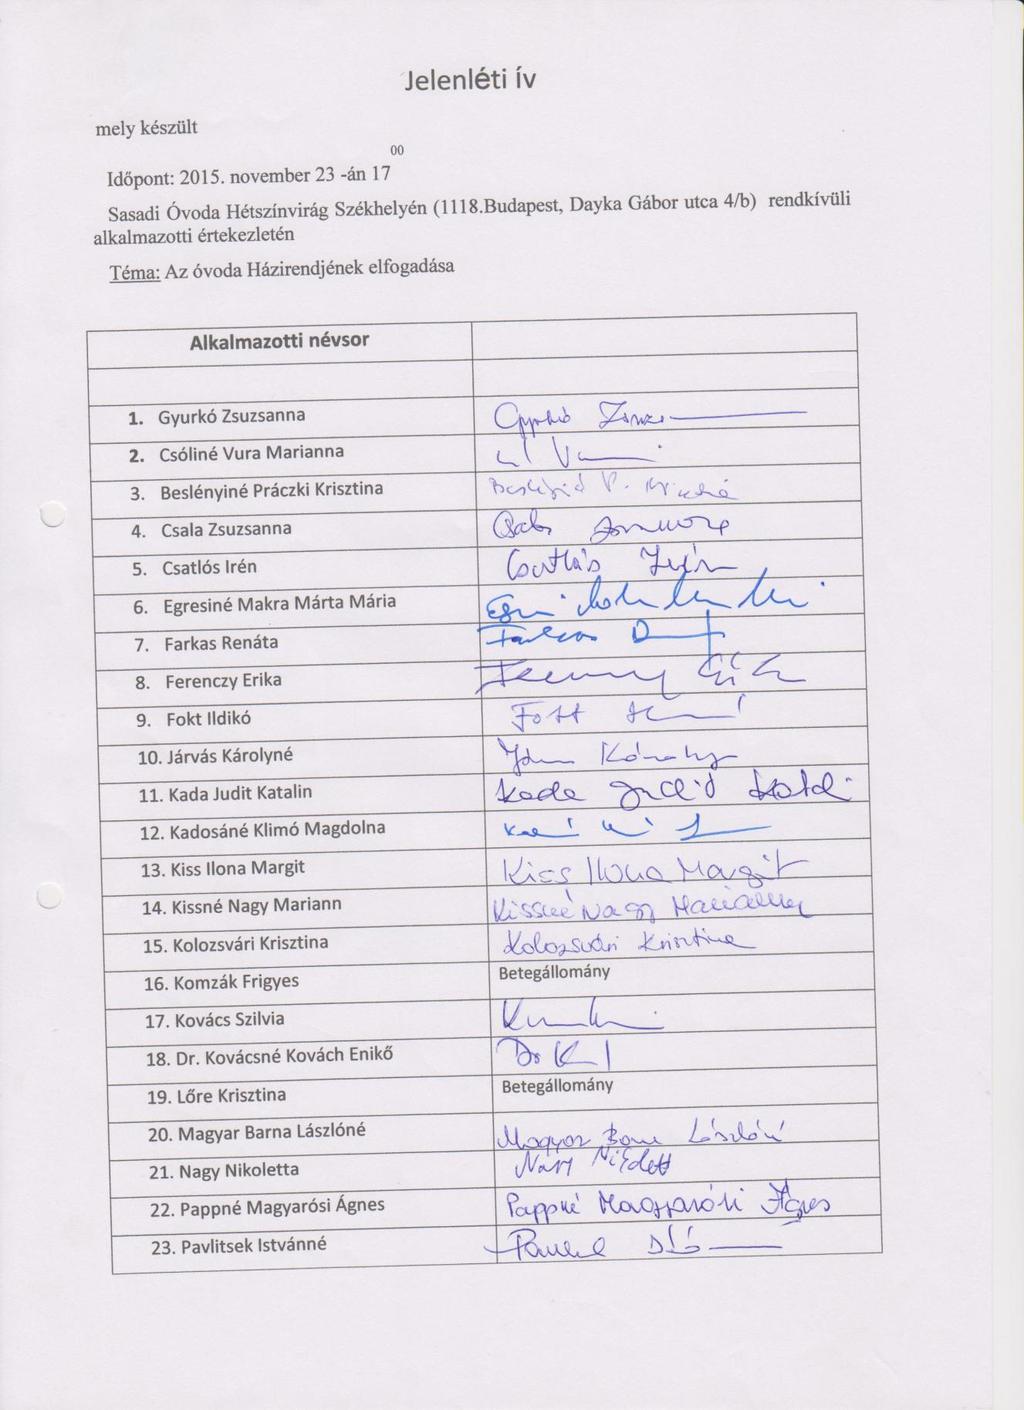 Jelenléti ív
mely készült
Időpont: 2015. november 23 -án 17 00
Sasadi Óvoda Hétszínvirág Székhelyén (1118.Budapest, Dayka Gábor utca 4/b) rendkívüli
alkalmazotti értekezletén
Téma: Az óvoda Házirendjének elfogadása
Alkalmazotti névsor
1. Gyurkó Zsuzsanna
2. Csóliné Vura Marianna
3. Beslényiné Práczki Krisztina
4. Csala Zsuzsanna
5. Csatlós Irén Csatlós Irén
6. Egresiné Makra Márta Mária
7. Farkas Renáta Farkas
8. Ferenczy Erika
9. Fokt Ildikó
10. Járvás Károlyné
11. Kada Judit Katalin Kada Judit
12. Kadosáné Klimó Magdolna
13. Kiss Ilona Margit Kiss Ilona Margit
14. Kissné Nagy Mariann Kissné Nagy
15. Kolozsvári Krisztina Kolozsvári Krisztina
16. Komzák Frigyes Betegállomány
17. Kovács Szilvia
18. Dr. Kovácsné Kovách Enikő Dr
19. Lőre Krisztina Betegállomány
20. Magyar Barna Lászlóné Magyar Lászlóné
21. Nagy Nikoletta Nagy
22. Pappné Magyarósi Ágnes Pappné Magyarósi Ágnes
23. Pavlitsek Istvánné